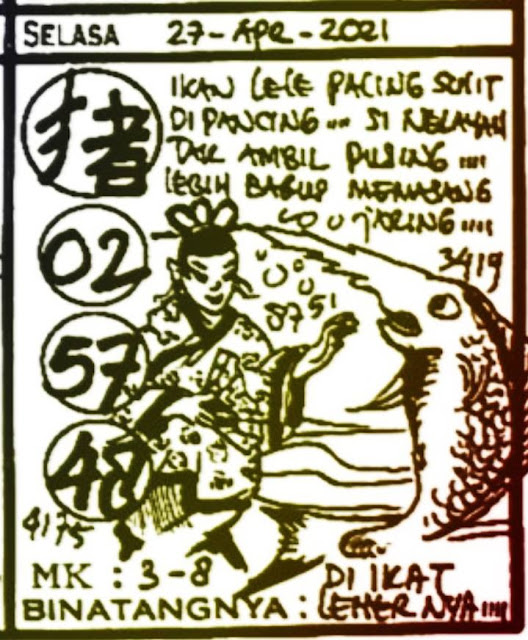 SELASA 27-APR-2021
猪
IKAN LELE PACING SULIT
DI PANCING .... SI NELAYAN
TAK AMBIL PUSING ....
LEBIH BAGUS MEMASANG
JARING ....
02
3419
57
8751
48
4175
MK : 3-8
DI IKAT
BINATANGNYA : LEHERNYA ....